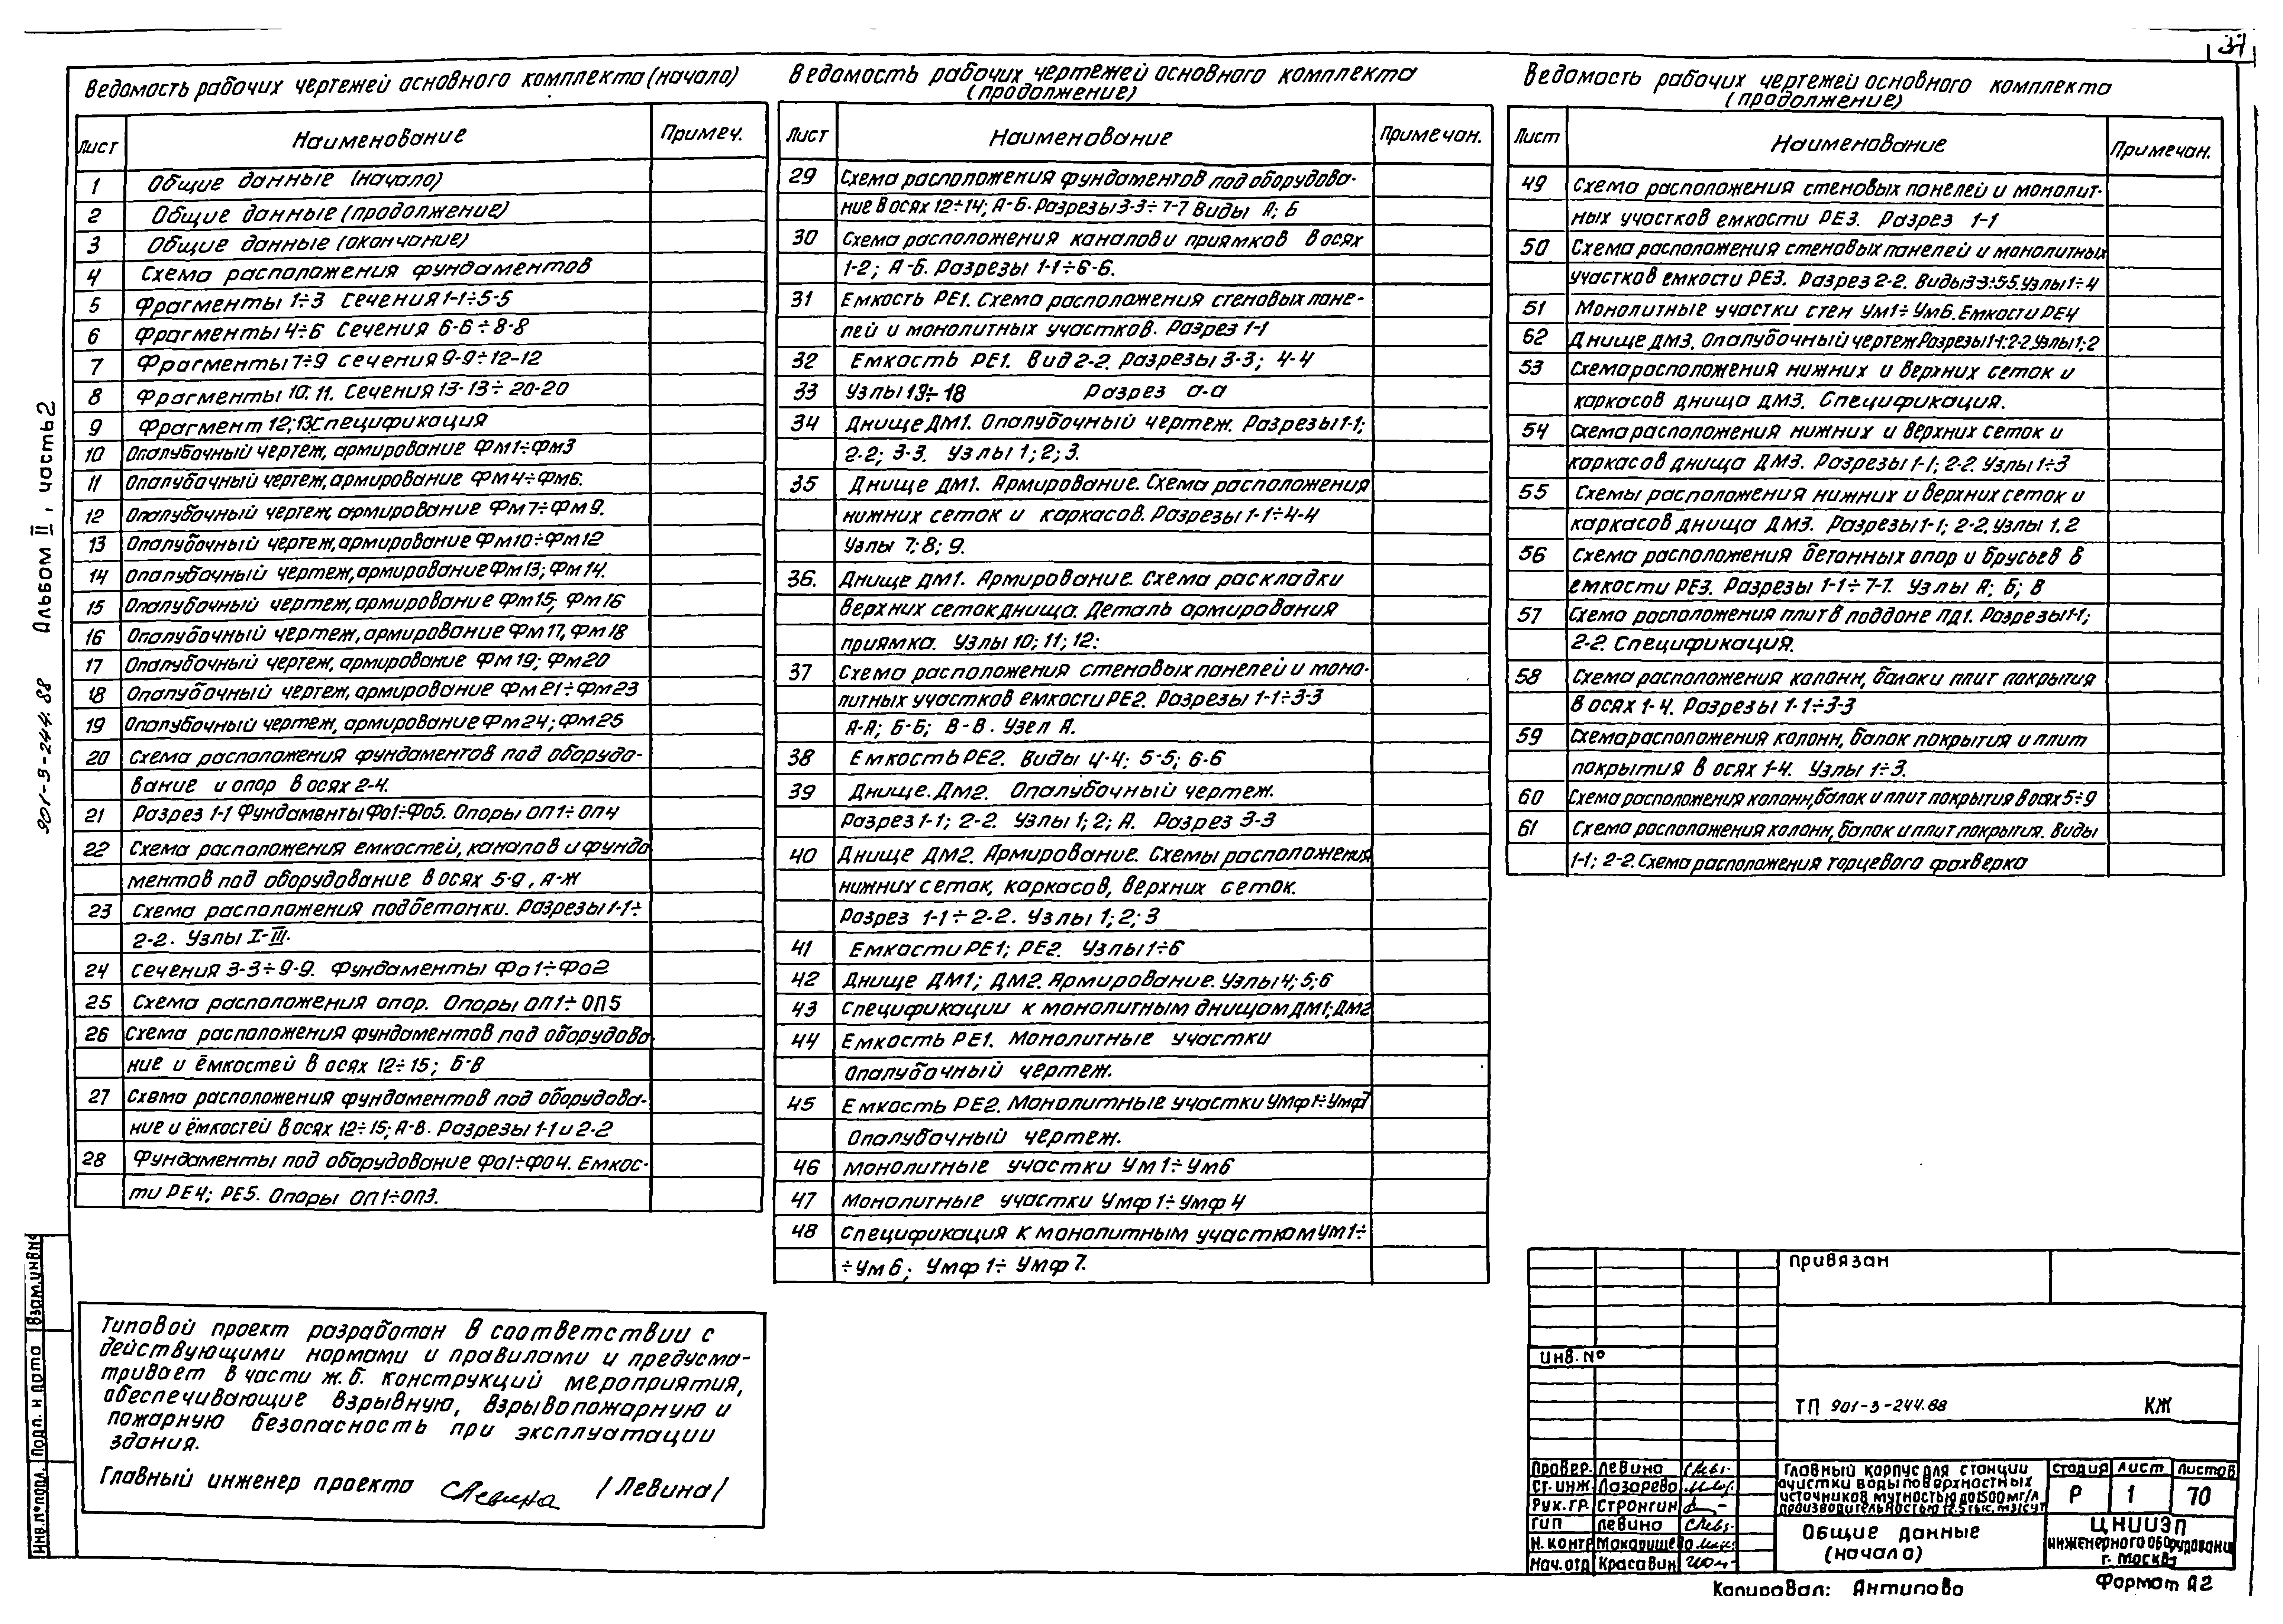 34
Ведомость рабочих чертежей основного комплекта (начало)
Лист Наименование Примеч.
1 Общие данные (начало)
2 Общие данные (продолжение)
3 Общие данные (окончание)
4 Схема расположения фундаментов
5 Фрагменты 1÷3 Сечения 1-1÷5-5
6 Фрагменты 4÷6 Сечения 6-6÷8-8
7 Фрагменты 7÷9 сечения 9-9÷12-12
8 Фрагменты 10; 11. Сечения 13-13÷20-20
9 Фрагмент 12; 13. Спецификация
10 Опалубочный чертеж, армирование Фм1÷Фм3
11 Опалубочный чертеж, армирование Фм4÷Фм6.
12 Опалубочный чертеж, армирование Фм7÷Фм9.
13 Опалубочный чертеж, армирование Фм10÷Фм12
14 Опалубочный чертеж, армирование Фм13; Фм14.
15 Опалубочный чертеж, армирование Фм15; Фм16
16 Опалубочный чертеж, армирование Фм17, Фм18
17 Опалубочный чертеж, армирование Фм19; Фм20
18 Опалубочный чертеж, армирование Фм21÷Фм23
19 Опалубочный чертеж, армирование Фм24; Фм25
20 Схема расположения фундаментов под оборудо-
вание и опор в осях 2-4.
21 Разрез 1-1 Фундаменты Фо1÷Фо5. Опоры ОП1÷ОП4
22 Схема расположения емкостей, каналов и фунда
ментов под оборудование в осях 5-9, А-Ж
23 Схема расположения подбетонки. Разрезы 1-1÷
2-2. Узлы I-III.
24 Сечения 3-3÷9-9. Фундаменты Фо1÷Фо2
25 Схема расположения опор. Опоры ОП1÷ОП5
26 Схема расположения фундаментов под оборудова
ние и ёмкостей в осях 12÷15; Б-В
27 Схема расположения фундаментов под оборудова-
ние и ёмкостей в осях 12÷15; А-В. Разрезы 1-1 и 2-2
28 Фундаменты под оборудование Фо1÷Фо4. Емкос-
ти РЕ4; РЕ5. Опоры ОП1÷ОП3.
Ведомость рабочих чертежей основного комплекта
(продолжение)
Лист Наименование Примечан.
29 Схема расположения фундаментов под оборудова-
ние в осях 12÷14; А-Б. Разрезы 3-3÷7-7 Виды А; Б
30 Схема расположения каналов и приямков в осях
1-2; А-Б. Разрезы 1-1÷6-6.
31 Емкость РЕ1. Схема расположения стеновых пане-
лей и монолитных участков. Разрез 1-1
32 Емкость РЕ1. Вид 2-2. Разрезы 3-3; 4-4
33 Узлы 13÷18 Разрез а-а
34 Днище ДМ1. Опалубочный чертеж. Разрезы 1-1;
2-2; 3-3. Узлы 1; 2; 3.
35 Днище ДМ1. Армирование. Схема расположения
нижних сеток и каркасов. Разрезы 1-1÷4-4
Узлы 7; 8; 9.
36. Днище ДМ1. Армирование. Схема раскладки
верхних сеток днища. Деталь армирования
приямка. Узлы 10; 11; 12.
37 Схема расположения стеновых панелей и моно-
литных участков емкости РЕ2. Разрезы 1-1÷3-3
А-А; Б-Б; В-В. Узел А.
38 Емкость РЕ2. Виды 4-4; 5-5; 6-6
39 Днище. Дм2. Опалубочный чертеж.
Разрез 1-1; 2-2. Узлы 1; 2; А. Разрез 3-3
40 Днище ДМ2. Армирование. Схемы расположения
нижних сеток, каркасов, верхних сеток.
Разрез 1-1÷2-2. Узлы 1; 2; 3
41 Емкости РЕ1; РЕ2. Узлы 1÷6
42 Днище ДМ1; ДМ2. Армирование. Узлы 4; 5; 6
43 Спецификации к монолитным днищам ДМ1; Дм2
44 Емкость РЕ1. Монолитные участки
Опалубочный чертеж.
45 Емкость РЕ2. Монолитные участки Умф1÷Умф7
Опалубочный чертеж.
46 Монолитные участки Ум1÷Ум6
47 Монолитные участки Умф1÷Умф4
48 Спецификация к монолитным участком Ум1÷
÷Ум6; Умф1÷Умф7.
Ведомость рабочих чертежей основного комплекта
(продолжение)
Лист Наименование Примечан.
49 Схема расположения стеновых панелей и монолит-
ных участков емкости РЕ3. Разрез 1-1
50 Схема расположения стеновых панелей и монолитных
участков емкости РЕ3. Разрез 2-2. Виды 3-3÷5-5. Узлы 1÷4
51 Монолитные участки стен Ум1÷Ум6. Емкости РЕ4
62 Днище ДМ3. Опалубочный чертеж Разрезы 1-1; 2-2 Узлы 1; 2
53 Схема расположения нижних и верхних сеток и
каркасов днища ДМ3. Спецификация.
54 Схема расположения нижних и верхних сеток и
каркасов днища ДМ3. Разрезы 1-1; 2-2 Узлы 1÷3
55 Схемы расположения нижних и верхних сеток и
каркасов днища ДМ3. Разрезы 1-1; 2-2. Узлы 1. 2
56 Схема расположения бетонных опор и брусьев в
емкости РЕ3. Разрезы 1-1÷7-7. Узлы А; Б; В
57 Схема расположения плит в поддоне ПД1. Разрезы 1-1;
2-2. Спецификация.
58 Схема расположения колонн, балок и плит покрытия
в осях 1-4. Разрезы 1-1÷3-3
59 Схема расположения колонн, балок покрытия и плит
покрытия в осях 1-4. Узлы 1÷3.
60 Схема расположения колонн, балок и плит покрытия в осях 5÷9
61 Схема расположения колонн, балок и плит покрытия. Виды
1-1; 2-2. Схема расположения торцевого фахверка
Альбом II, часть 2
901-3-244.88
Взам.инв№
Подп. и дата
Инв.№ подл.
Типовой проект разработан в соответствии с
действующими нормами и правилами и предусма-
тривает в части ж.б. конструкций мероприятия,
обеспечивающие взрывную, взрывопожарную и
пожарную безопасность при эксплуатации
здания.
Главный инженер проекта СЛевина /Левина/
Привязан
Инв.№
ТП 901-3-244.88 КЖ
Провер. Левина
Ст.инж. Лазарева
Рук.гр. Стронгин
ГИП Левина
Н.контр Макарищева
Нач.отд Красавин
Главный корпус для станции
очистки воды поверхностных
источников мутностью до 1500 мг/л
производительностью 12.5 тыс. м3/сут
Стадия Лист Листов
Р 1 70
Общие данные
(начало)
ЦНИИЭП
инженерного оборудования
г. Москва
Копировал: Антипова
Формат А2